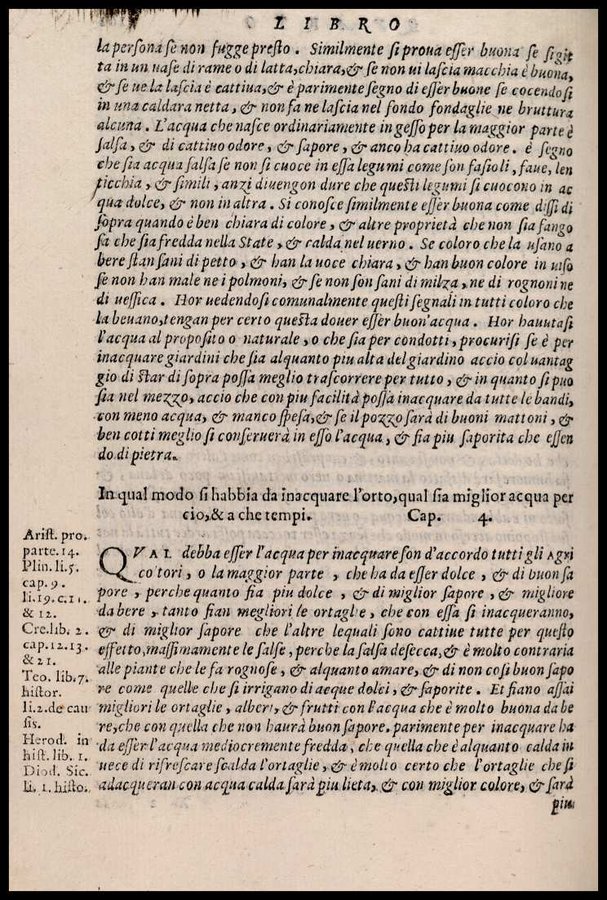 LIBRO
la persona se non fugge presto. Similmente si proua esser buona se si git
ta in un uase di rame o di latta, chiara, & se non ui lascia macchia è buona,
& se ue la lascia è cattiua, & è parimente segno di esser buone se cocendosi
in una caldara netta, & non fa ne lascia nel fondo fondaglie ne bruttura
alcuna. L'acqua che nasce ordinariamente in gesso per la maggior parte è
salsa, & di cattiuo odore, & sapore, & anco ha cattiuo odore. è segno
che sia acqua salsa se non si cuoce in essa legumi come son fasioli, faue, len
ticchia, & simili, anzi diuengon dure che questi legumi si cuocono in ac
qua dolce, & non in altra. Si conosce similmente esser buona come dissi di
sopra quando è ben chiara di colore, & altre proprietà che non sia fango
sa che sia fredda nella State, & calda nel uerno. Se coloro che la usano a
bere stan sani di petto, & han la uoce chiara, & han buon colore in uiso
se non han male ne i polmoni, & se non son sani di milza, ne di rognoni ne
di uessica. Hor uedendosi comunalmente questi segnali in tutti coloro che
la beuano, tengan per certo questa douer esser buon'acqua. Hor hauutasi
l'acqua al proposito o naturale, o che sia per condotti, procurisi se è per
inacquare giardini che sia alquanto piu alta del giardino accio col uantag
gio di star di sopra possa meglio trascorrere per tutto, & in quanto si puo
sia nel mezzo, accio che con piu facilità possa inacquare da tutte le bandi,
con meno acqua, & manco spesa, & se il pozzo sarà di buoni mattoni, &
ben cotti meglio si conseruerà in esso l'acqua, & fia piu saporita che essen
do di pietra.
In qual modo si habbia da inacquare l'orto, qual sia miglior acqua per
cio, & a che tempi. Cap. 4.
Arist. pro.
parte. 14.
Plin. li. 5.
cap. 9.
li. 19. c. 11.
& 12.
Cre. lib. 2.
cap. 12. 13.
& 21.
Teo. lib. 7.
histor.
li. 2. de cau
sis.
Herod. in
hist. lib. 1.
Diod. Sic.
li. 1. histo.
QVAL debba esser l'acqua per inacquare son d'accordo tutti gli Agri
coltori, o la maggior parte, che ha da esser dolce, & di buon sa
pore, perche quanto fia piu dolce, & di miglior sapore, & migliore
da bere, tanto fian megliori le ortaglie, che con essa si inacqueranno,
& di miglior sapore che l'altre lequali sono cattiue tutte per questo
effetto, massimamente le salse, perche la salsa desecca, & è molto contraria
alle piante che le fa rognose, & alquanto amare, & di non cosi buon sapo
re come quelle che si irrigano di acque dolci, & saporite. Et fiano assai
migliori le ortaglie, alberi, & frutti con l'acqua che è molto buona da be
re, che con quella che non haurà buon sapore. parimente per inacquare ha
da esser l'acqua mediocremente fredda, che quella che è alquanto calda in
uece di rifrescare scalda l'ortaglie, & è molto certo che l'ortaglie che si
adacqueran con acqua calda sarà piu lieta, & con miglior colore, & sarà
piu